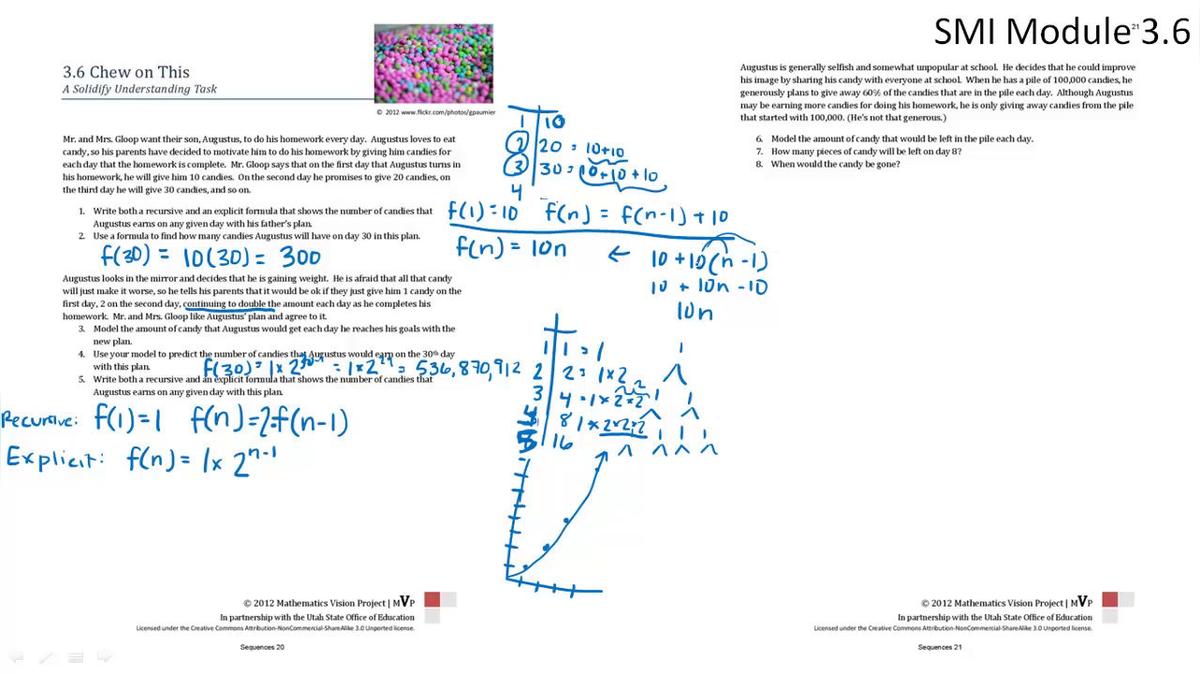 SMI Module 3.6
21
20
3.6 Chew on This
A Solidify Understanding Task
© 2012 www.flickr.com/photos/gpaumier
Mr. and Mrs. Gloop want their son, Augustus, to do his homework every day. Augustus loves to eat
candy, so his parents have decided to motivate him to do his homework by giving him candies for
each day that the homework is complete. Mr. Gloop says that on the first day that Augustus turns in
his homework, he will give him 10 candies. On the second day he promises to give 20 candies, on
the third day he will give 30 candies, and so on.
1. Write both a recursive and an explicit formula that shows the number of candies that
Augustus earns on any given day with his father's plan.
2. Use a formula to find how many candies Augustus will have on day 30 in this plan.
f(30) = 10(30) = 300
Augustus looks in the mirror and decides that he is gaining weight. He is afraid that all that candy
will just make it worse, so he tells his parents that it would be ok if they just give him 1 candy on the
first day, 2 on the second day, continuing to double the amount each day as he completes his
homework. Mr. and Mrs. Gloop like Augustus' plan and agree to it.
3. Model the amount of candy that Augustus would get each day he reaches his goals with the
new plan.
4. Use your model to predict the number of candies that Augustus would earn on the 30th day
with this plan.
f(30) = 1 x 2^30-1 = 1 x 2^29 = 536,870,912
5. Write both a recursive and an explicit formula that shows the number of candies that
Augustus earns on any given day with this plan.
Recursive: f(1)=1 f(n)=2·f(n-1)
Explicit: f(n) = 1x 2^n-1
1 10
2 20 = 10+10
3 30 = 10+10+10
4
f(1)=10 f(n) = f(n-1) + 10
f(n) = 10n ← 10+10(n-1)
10 + 10n -10
10n
1 1 = 1
2 2 = 1x2
3 4 = 1x2x2
4 8 1x2x2x2
5 16
Augustus is generally selfish and somewhat unpopular at school. He decides that he could improve
his image by sharing his candy with everyone at school. When he has a pile of 100,000 candies, he
generously plans to give away 60% of the candies that are in the pile each day. Although Augustus
may be earning more candies for doing his homework, he is only giving away candies from the pile
that started with 100,000. (He's not that generous.)
6. Model the amount of candy that would be left in the pile each day.
7. How many pieces of candy will be left on day 8?
8. When would the candy be gone?
© 2012 Mathematics Vision Project | MVP
In partnership with the Utah State Office of Education
Licensed under the Creative Commons Attribution-NonCommercial-ShareAlike 3.0 Unported license.
Sequences 20
© 2012 Mathematics Vision Project | MVP
In partnership with the Utah State Office of Education
Licensed under the Creative Commons Attribution-NonCommercial-ShareAlike 3.0 Unported license.
Sequences 21